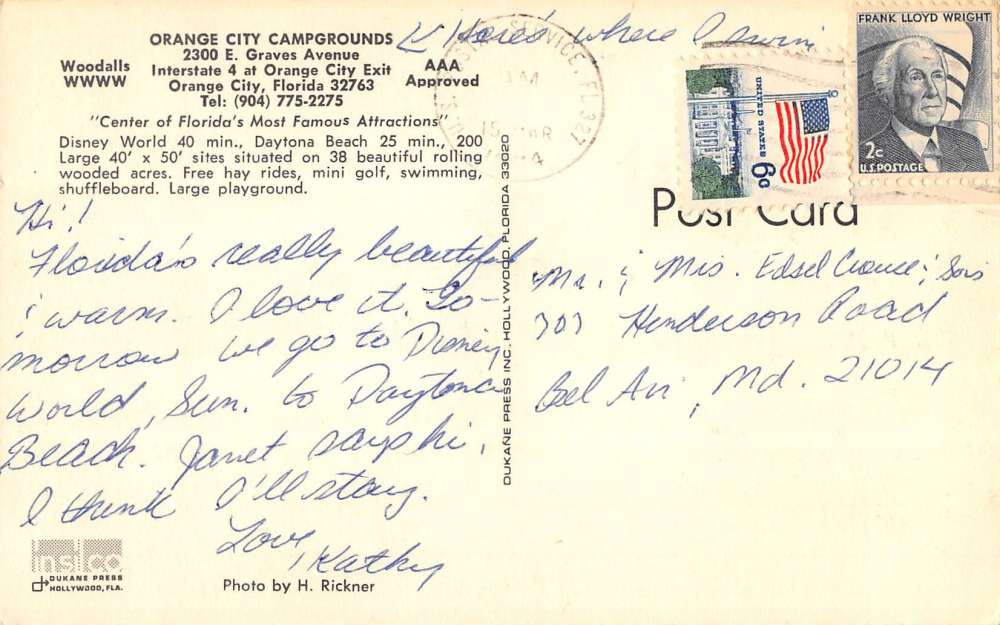 ORANGE CITY CAMPGROUNDS
2300 E. Graves Avenue
Interstate 4 at Orange City Exit
Orange City, Florida 32763
Tel: (904) 775-2275
Woodalls
WWWW
AAA
Approved
"Center of Florida's Most Famous Attractions"
Disney World 40 min., Daytona Beach 25 min., 200
Large 40' x 50' sites situated on 38 beautiful rolling
wooded acres. Free hay rides, mini golf, swimming,
shuffleboard. Large playground.
Here's where I swim
Hi!
Florida's really beautiful
& warm. I love it. To-
morrow we go to Disney
World, Sun. to Daytona
Beach. Janet says hi,
I think I'll stay.
Love,
Kathy
insco
DUKANE PRESS
HOLLYWOOD, FLA.
Photo by H. Rickner
DUKANE PRESS INC. HOLLYWOOD, FLORIDA 33020
SERVICE, FL 327
AM
15
UNITED STATES
6c
FRANK LLOYD WRIGHT
2c
U.S. POSTAGE
Post Card
Mr. & Mrs. Edsel & Sons
707 Henderson Road
Bel Air, Md. 21014